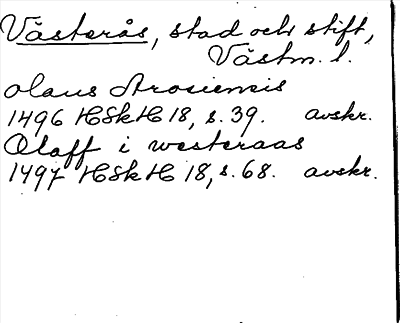 Västerås, stad och stift,
Västm. l.
olaus Arosiensis
1496 HSkH 18, s. 39. avskr.
Olaff i westeraas
1497 HSkH 18, s. 68. avskr.